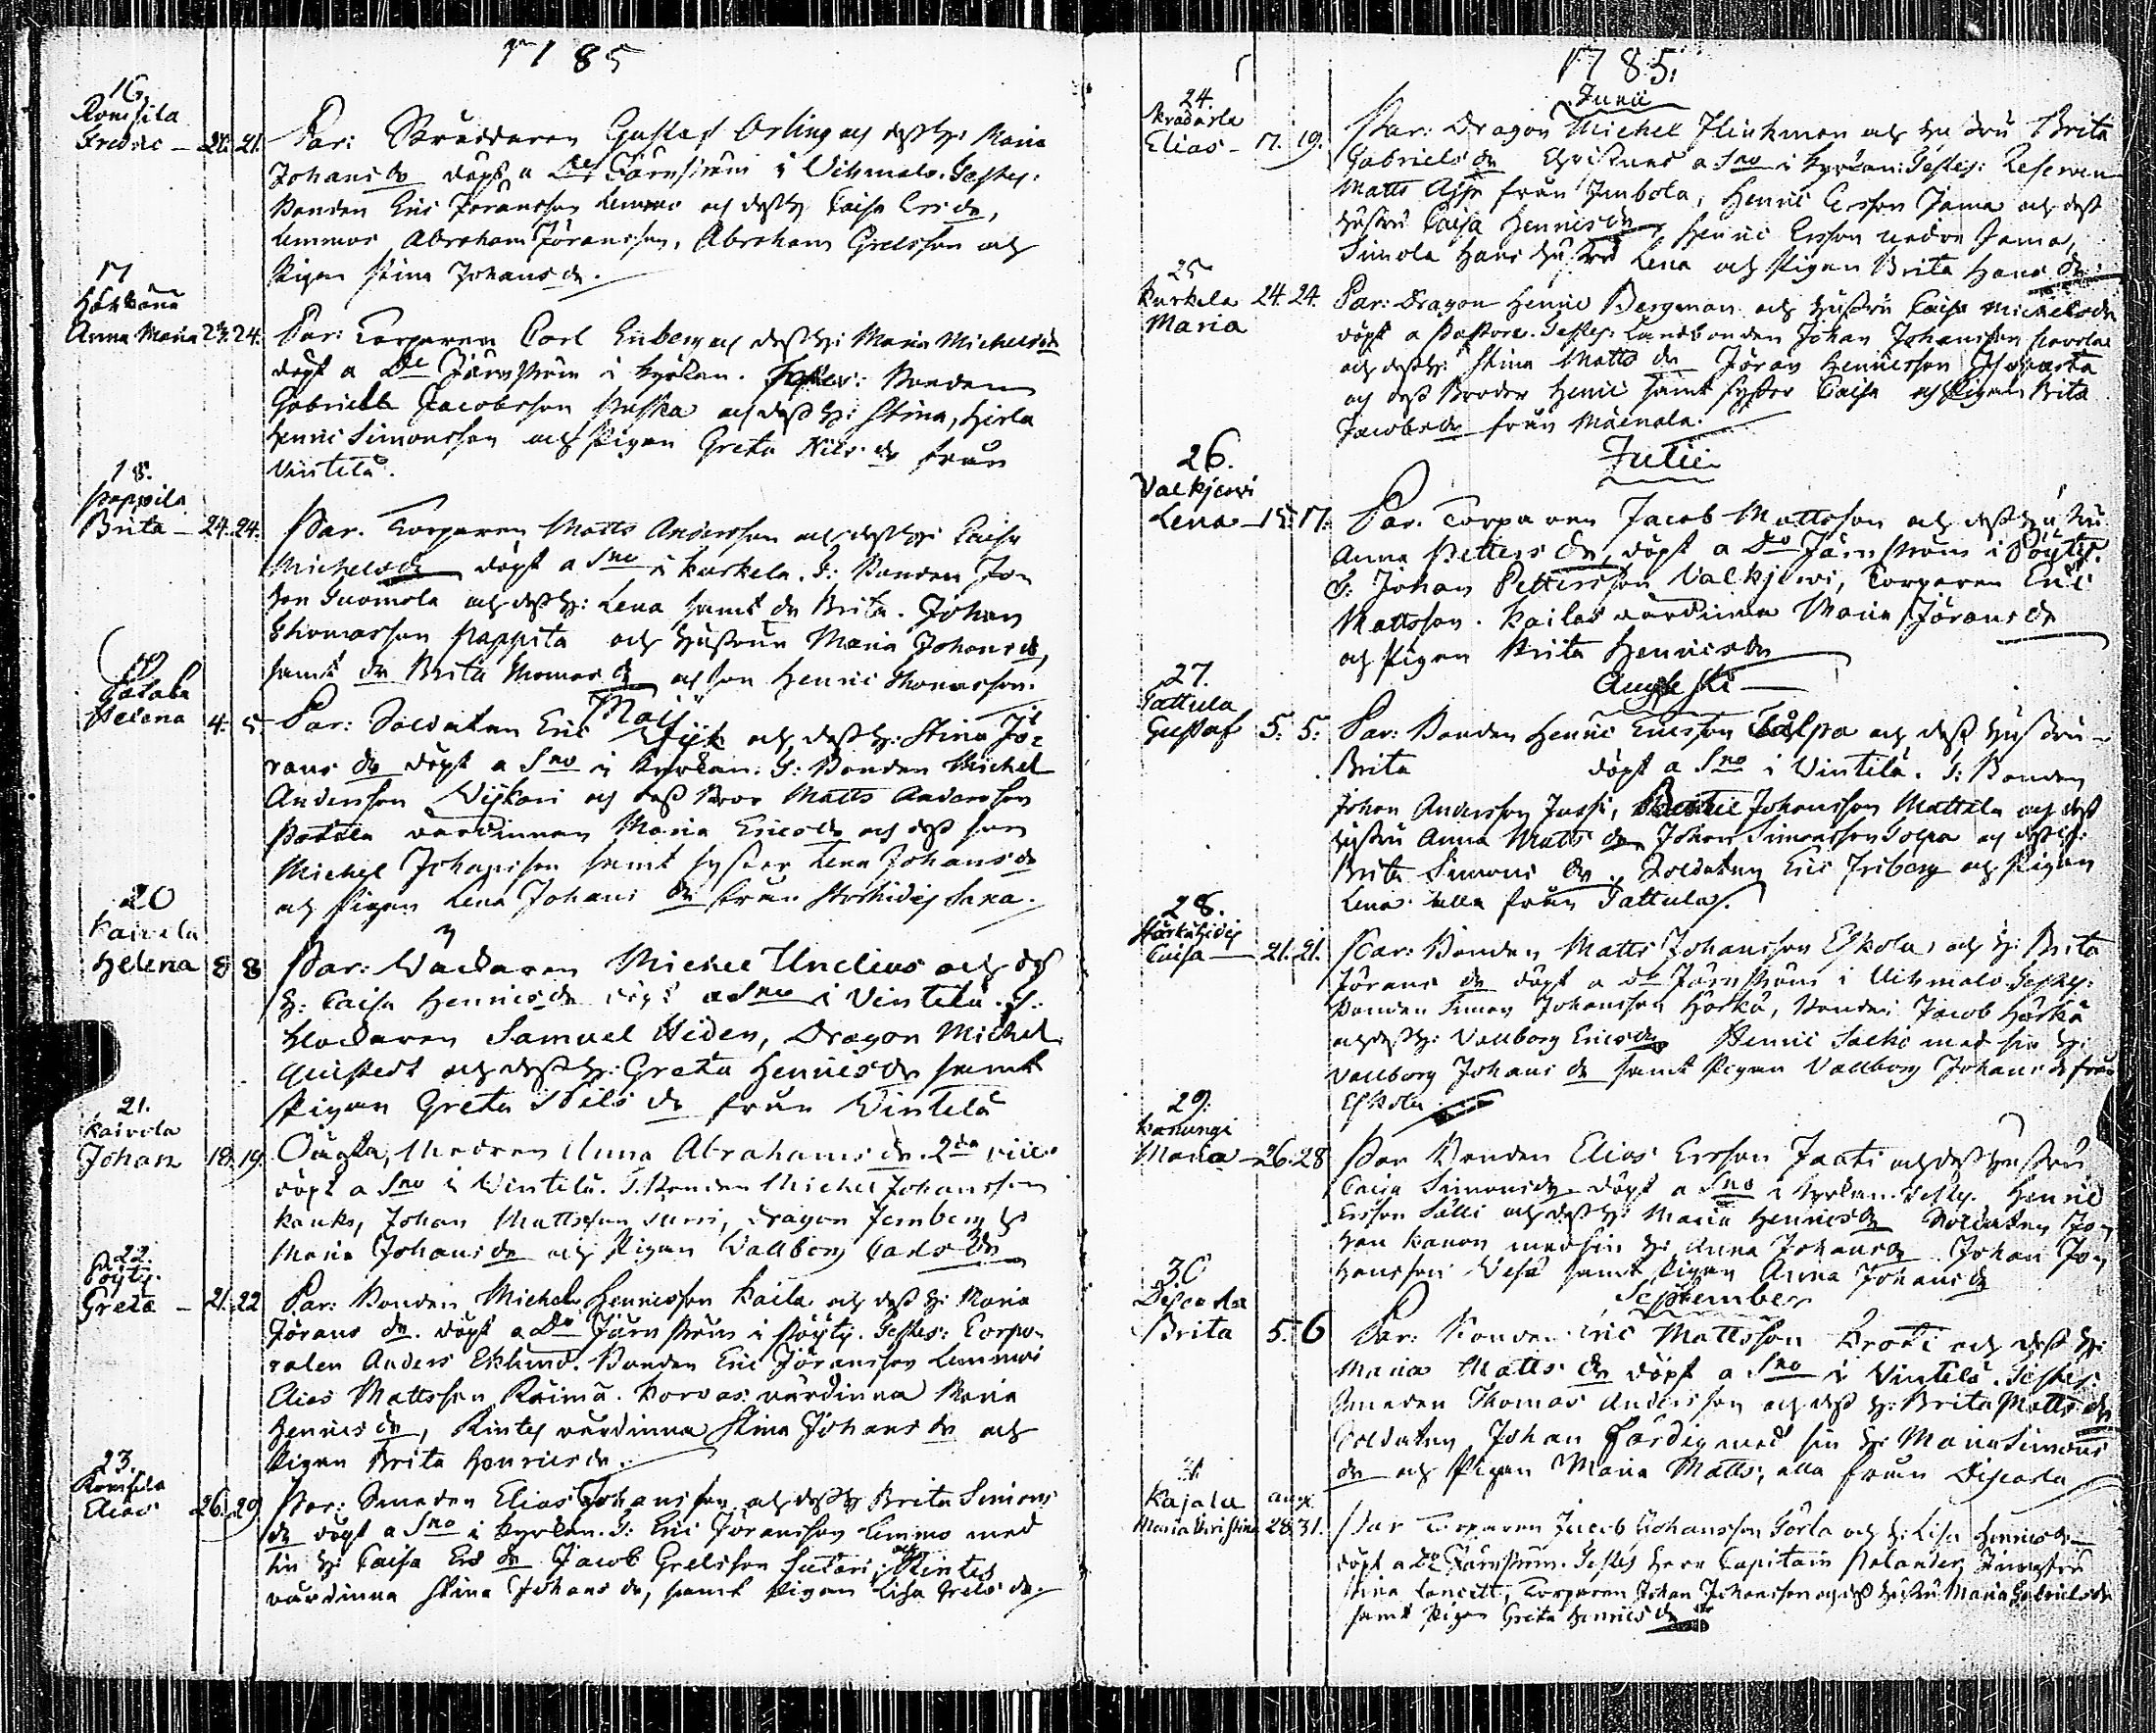 1785
16.
Romsila
Fredric – 20. 21.
Par: Skräddaren Gustaf Orling och dess H: Maria
Johans dr döpt a Dno Järnström i Uihmalo. Testes:
Bonden Eric Jöransson Lemmoi och dess H: Caisa Ers dr,
Lemmoi Abraham Jöransson, Abraham Grelsson och
Pigan Stina Johans dr.
17
Anna Maria 23. 24.
Par: Torparen Carl Enberg och dess H: Maria Michels dr
döpt a Dno Järnström i Kyrkan. Testes: Bonden
Gabriel Jacobsson och dess H: Stina,
Henric Simonsson och Pigan Greta Nils dr från
Vintelä.
18.
Pappila
Brita – 24. 24.
Par. Torparen Matts Andersson och dess H: Caisa
Michels dr döpt a Sno i Karkela. T: Bonden Jo-
han Suomola och dess H: Lena samt dr Brita. Johan
Thomasson Pappila och Hustrun Maria Johans dr,
samt dr Brita Thomas dr och son Henric Thomasson.
Maij
19
Helena 4. 5
Par: Soldaten Eric och dess H: Stina Jö-
rans dr döpt a Sno i Kyrkan. T: Bonden Michel
Andersson och dess Bror Matts Andersson
värdinnan Maria Erics dr och dess son
Michel Johansson samt syster Lena Johans dr
och Pigan Lena Johans dr från
20
Kaivola
Helena 8 8
Par: Michel Unelius och dess
H: Caisa Henrics dr döpt a Sno i Vintelä. T:
Klockaren Samuel Widen, Dragon Michel
Qvistedt och dess H: Greta Henrics dr samt
Pigan Greta Nils dr från Vintelä
21.
Kaivola
Johan 18. 19.
Oägta, Modren Anna Abrahams dr 2da vice
döpt a Sno i Vintelä. T: Bonden Michel Johansson
Johan Mattsson Dragon Jernberg H:
Maria Johans dr och Pigan Wallborg Carls dr
22.
Pöytis.
Greta – 21. 22
Par: Bonden Michel Henricsson Kaila och dess H: Maria
Jörans dr. döpt a Dno Järnström i Pöytis. Testes: Corpo-
ralen Anders Eklund. Bonden Eric Jöransson Lemmoi
Elias Mattsson Raimä. värdinna Maria
Henrics dr, värdinna Stina Johans dr och
Pigan Brita Henrics dr.
23.
Romsila
Elias 26. 29
Par: Smeden Elias Johansson och dess H: Brita Simons
dr döpt a Sno i Kyrkan. T: Eric Jöransson Lemmo med
sin H: Caisa Ers dr Jacob Grelsson Sutari och
värdinna Stina Johans dr, samt Pigan Lisa Grels dr.
1785.
Junii
24.
Elias – 17. 19.
Par: Dragon Michel Flinkman och hustru Brita
Gabriels dr Christnad a Sno i Kyrkan: Testes:
Matts från Henric Ersson Jama och dess
hustru Caisa Henrics dr, Henric Ersson nedre Jama,
Simola Hans hustru Lena och Pigan Brita Hans dr.
25
Karkela 24. 24.
Maria
Par: Dragon Henric Bergman och hustru Caisa Michels dr
döpt a Pastore. Testes: Landbonden Johan Johansson
och dess H: Stina Matts dr Jöran Henricsson
och dess Broder Henric samt syster Caisa och Pigan Brita
Jacobs dr från
Julii
26.
Valkjervi
Lena – 15. 17.
Par. Torparen Jacob Mattsson och dess hustru
Anna Petters dr, döpt a Dno Järnström i Pöytis.
T: Johan Pettersson Valkjervi, Torparen Eric
Mattsson. Kailas värdinna Maria Jörans dr
och Pigan Brita Henrics dr
Augusti
27.
Tattula
Gustaf 5. 5.
Par: Bonden Henric Ericsson Tålpa och dess hustru
Brita döpt a Sno i Vintelä. T: Bonden
Johan Andersson Jussi, Johansson Mattila och dess
hustru Anna Matts dr Johan Simonsson Tolpa och dess H:
Brita Simons dr, Soldaten Eric Friberg och Pigan
Lena alla från Tattula.
28.
Caisa – 21. 21.
Par: Bonden Matts Johansson Eskola och H: Brita
Jörans dr döpt a Dno Järnström i Uihmalo. Testes:
Bonden Simon Johansson Hörkä, Bonden Jacob Hörkä
och dess H: Vallborg Erics dr Henric med sin H:
Vallborg Johans dr samt Pigan Vallborg Johans dr från
Eskola
29.
Maria – 26. 28
Par Bonden Elias Ersson Jaati och dess hustru
Caisa Simons dr döpt a Sno i Kyrkan. Testes. Henric
Ersson och dess H: Maria Henrics dr Soldaten Jo-
han Kanon med sin H: Anna Johans dr Johan Jo-
hansson samt Pigan Anna Johans dr
September
30
Brita 5. 6
Par: Bonden Eric Mattsson och dess H:
Maria Matts dr döpt a Sno i Vintelä. Testes:
Smeden Thomas Andersson och dess H: Brita Matts dr
Soldaten Johan Färdig med sin H: Maria Simons
dr och Pigan Maria Matts, alla från
31.
Kajala aug.
Maria Christina 28. 31.
Par Torparen Jacob Johansson och H: Lisa Henrics dr
döpt a Dno Järnström. Testes Herr Capitain Jungfru
Torparen Johan Johansson och dess hustru Maria Gabriels dr
samt Pigan Greta Henrics dr